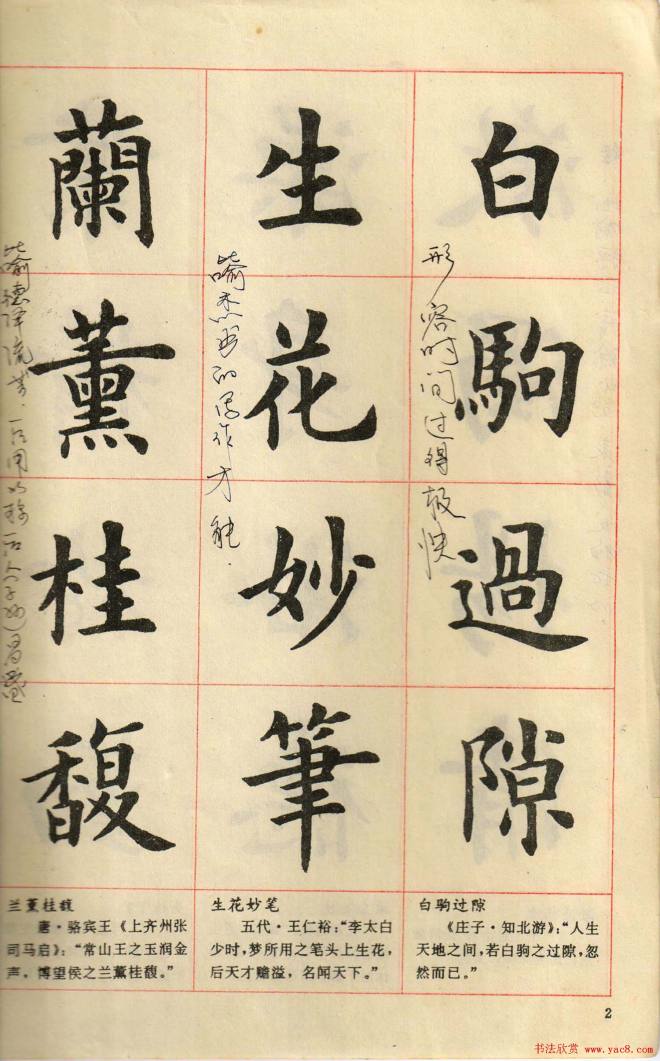 白駒過隙
生花妙筆
蘭薰桂馥
形容时间过得极快
喻杰出的写作才能.
白驹过隙
《庄子·知北游》:“人生
天地之间,若白驹之过隙,忽
然而已。”
生花妙笔
五代·王仁裕:“李太白
少时,梦所用之笔头上生花,
后天才赡溢,名闻天下。”
兰薰桂馥
唐·骆宾王《上齐州张
司马启》:“常山王之玉润金
声,博望侯之兰薰桂馥。”
2
书法欣赏 www.yac8.com